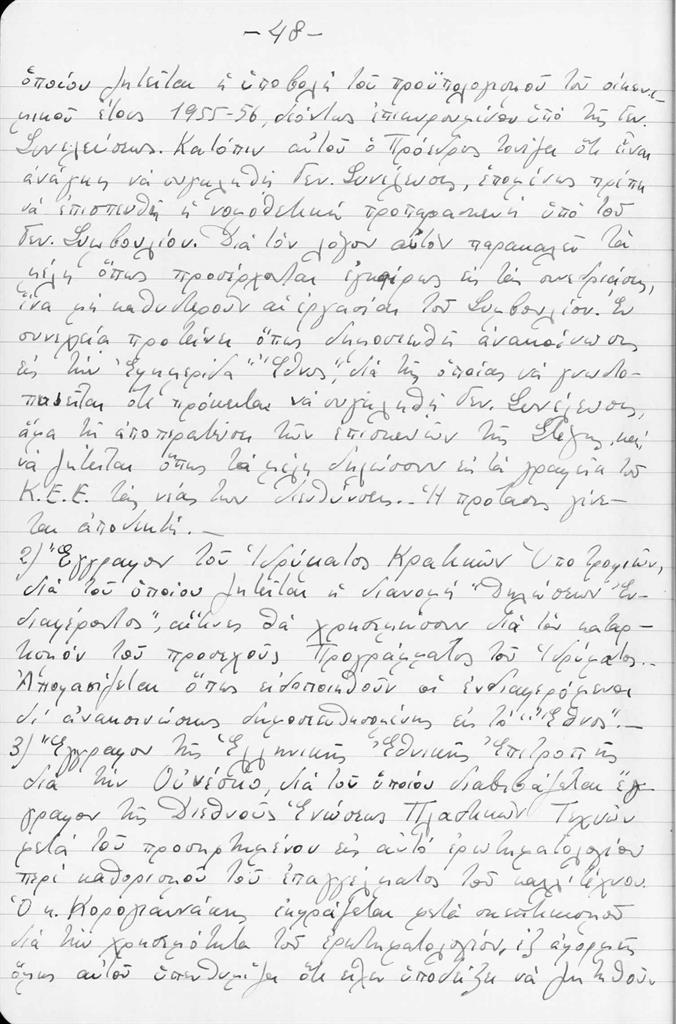 -48-
ὁποίου ζητεῖται ἡ ὑποβολὴ τοῦ προϋπολογισμοῦ τοῦ οἰκονο-
μικοῦ ἔτους 1955-56, δεόντως ἐπικυρουμένου ὑπὸ τῆς Γεν.
Συνελεύσεως. Κατόπιν αὐτοῦ ὁ Πρόεδρος τονίζει ὅτι εἶναι
ἀνάγκη νὰ συγκληθῇ Γεν. Συνέλευσις, ἑπομένως πρέπει
νὰ ἐπισπευθῇ ἡ νομοθετικὴ προπαρασκευὴ ὑπὸ τοῦ
Γεν. Συμβουλίου. Διὰ τὸν λόγον αὐτὸν παρακαλεῖ τὰ
μέλη ὅπως προσέρχονται ἐγκαίρως εἰς τὰς συνεδριάσεις,
ἵνα μὴ καθυστεροῦν αἱ ἐργασίαι τοῦ Συμβουλίου. Ἐν
συνεχείᾳ προτείνει ὅπως δημοσιευθῇ ἀνακοίνωσις
εἰς τὴν Ἐφημερίδα "Ἔθνος", διὰ τῆς ὁποίας νὰ γνωστο-
ποιεῖται ὅτι πρόκειται νὰ συγκληθῇ Γεν. Συνέλευσις,
ἅμα τῇ ἀποπερατώσει τῶν ἐπισκευῶν τῆς Στέγης, καὶ
νὰ ζητεῖται ὅπως τὰ μέλη δηλώσουν εἰς τὰ γραφεῖα τοῦ
Κ.Ε.Ε. τὰς νέας των διευθύνσεις.- Ἡ πρότασις γίνε-
ται ἀποδεκτή.-
2) Ἔγγραφον τοῦ Ἱδρύματος Κρατικῶν Ὑποτροφιῶν,
διὰ τοῦ ὁποίου ζητεῖται ἡ διανομὴ "Δηλώσεων Ἐν-
διαφέροντος", αἵτινες θὰ χρησιμεύσουν διὰ τὸν καταρ-
τισμὸν τοῦ προσεχοῦς Προγράμματος τοῦ Ἱδρύματος.-
Ἀποφασίζεται ὅπως εἰδοποιηθοῦν οἱ ἐνδιαφερόμενοι
δι' ἀνακοινώσεως δημοσιευθησομένης εἰς τὸ "Ἔθνος".-
3) Ἔγγραφον τῆς Ἑλληνικῆς Ἐθνικῆς Ἐπιτροπῆς
διὰ τὴν Οὐνέσκο, διὰ τοῦ ὁποίου διαβιβάζεται ἔγ-
γραφον τῆς Διεθνοῦς Ἑνώσεως Πλαστικῶν Τεχνῶν
μετὰ τοῦ προσηρτημένου εἰς αὐτὸ ἐρωτηματολογίου
περὶ καθορισμοῦ τοῦ ἐπαγγέλματος τοῦ καλλιτέχνου.
Ὁ κ. Κορογιαννάκης ἐκφράζεται μετὰ σκεπτικισμοῦ
διὰ τὴν χρησιμότητα τοῦ ἐρωτηματολογίου, ἐξ ἀφορμῆς
ὅμως αὐτοῦ ὑπενθυμίζει ὅτι εἶχεν ὑποδείξει νὰ ζητηθοῦν